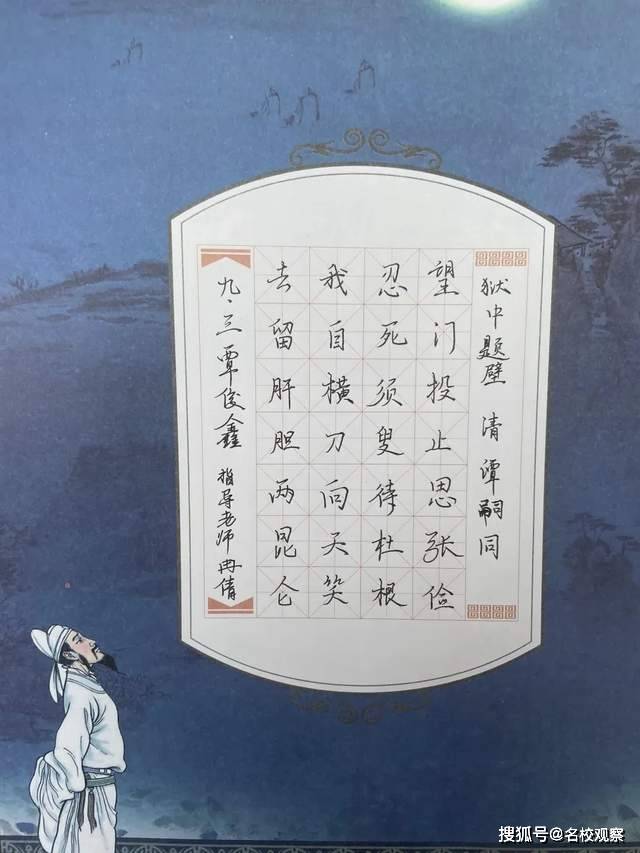 狱中题壁 清 谭嗣同
望门投止思张俭
忍死须叟待杜根
我自横刀向天笑
去留肝胆两昆仑
九·三覃俊鑫 指导老师 冉倩
搜狐号@名校观察